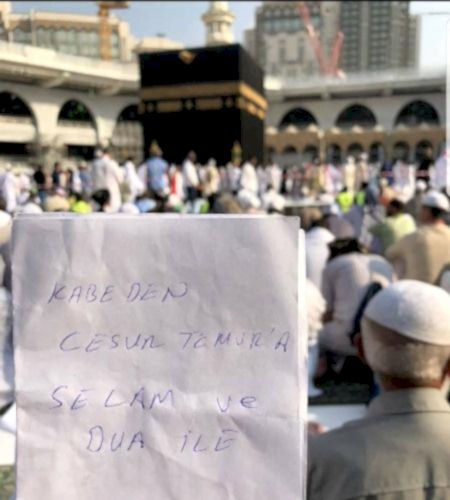 KABEDEN
CESUR TEMUR'A
SELAM ve
DUA iLE